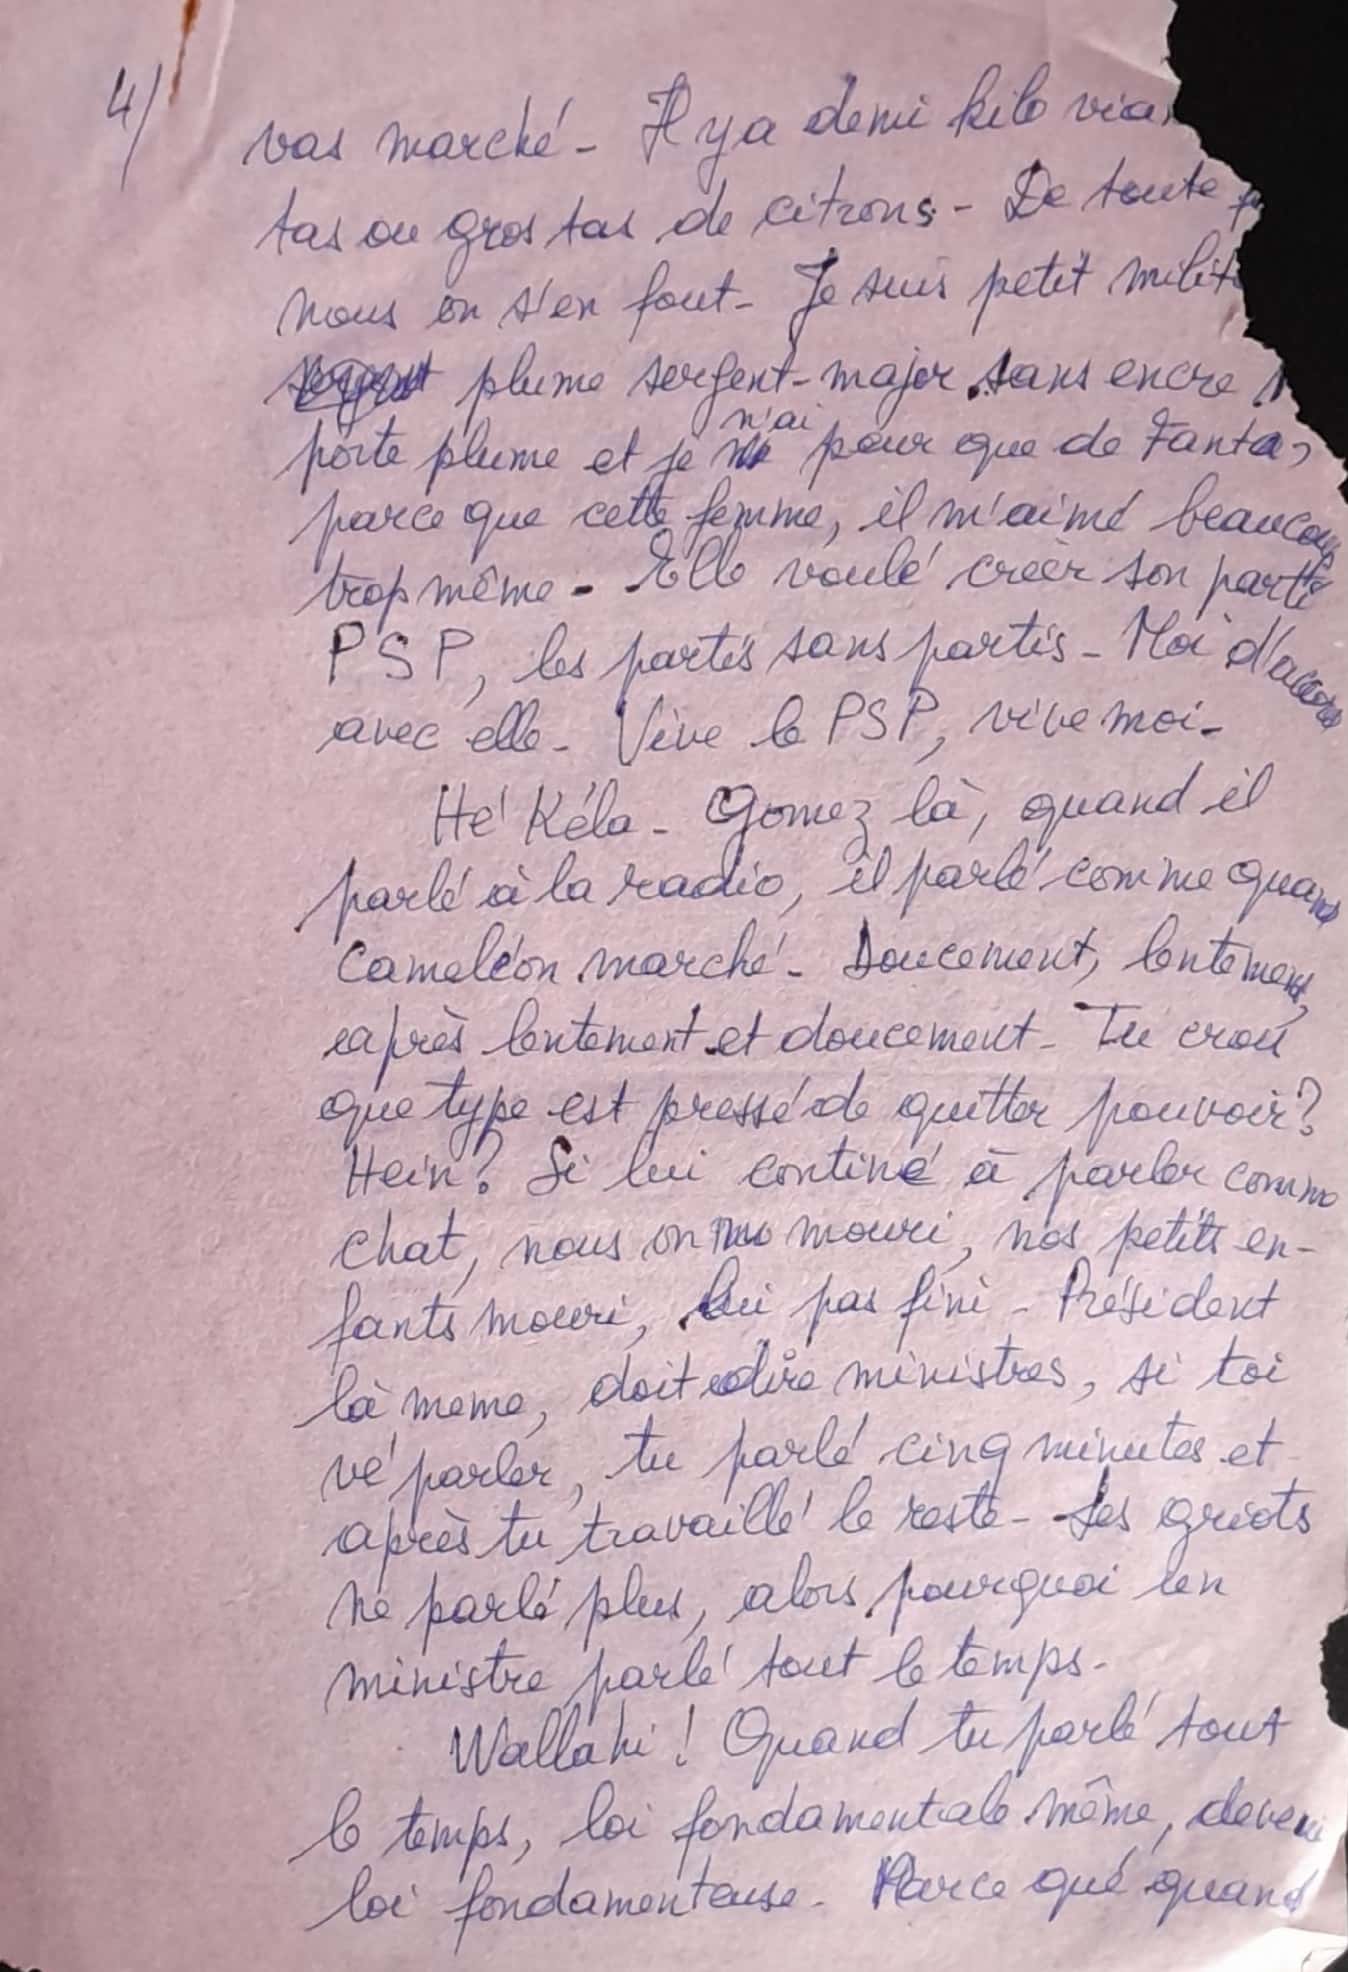 4/
vas marché - Il y a demi kilo
tas ou gros tas de citrons - De toute
nous on s'en fout - Je suis petit
plume sergent-major sans encre
porte plume et je n'ai peur que de Fanta,
parce que cette femme, il m'aimé beaucoup
trop même - Elle voulé créer son parti
PSP, les partis sans partis - Moi d'accord
avec elle - Vive le PSP, vive moi -
Hé Kéla - Gomez là, quand il
parlé à la radio, il parlé comme quand
caméléon marché - Doucement, lentement,
après lentement et doucement - Tu croi
que type est pressé de quitter pouvoir ?
Hein ? Si lui continé à parler comme
chat, nous on mouri, nos petits en-
fants mouri, lui pas fini - Président
là meme, doit dire ministres, si toi
vé parler, tu parlé cinq minutes et
après tu travaillé le reste - Les griots
ne parlé plus, alors pourquoi len
ministre parlé tout le temps -
Wallahi ! Quand tu parlé tout
le temps, loi fondamentale même, deveni
loi fondamenteuse - Parce qué quand